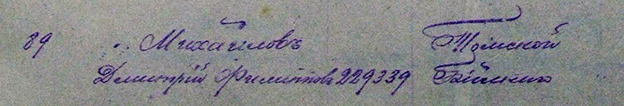 89 Михайловъ Томской
Дмитрій Филиповъ 229339 Бійскій